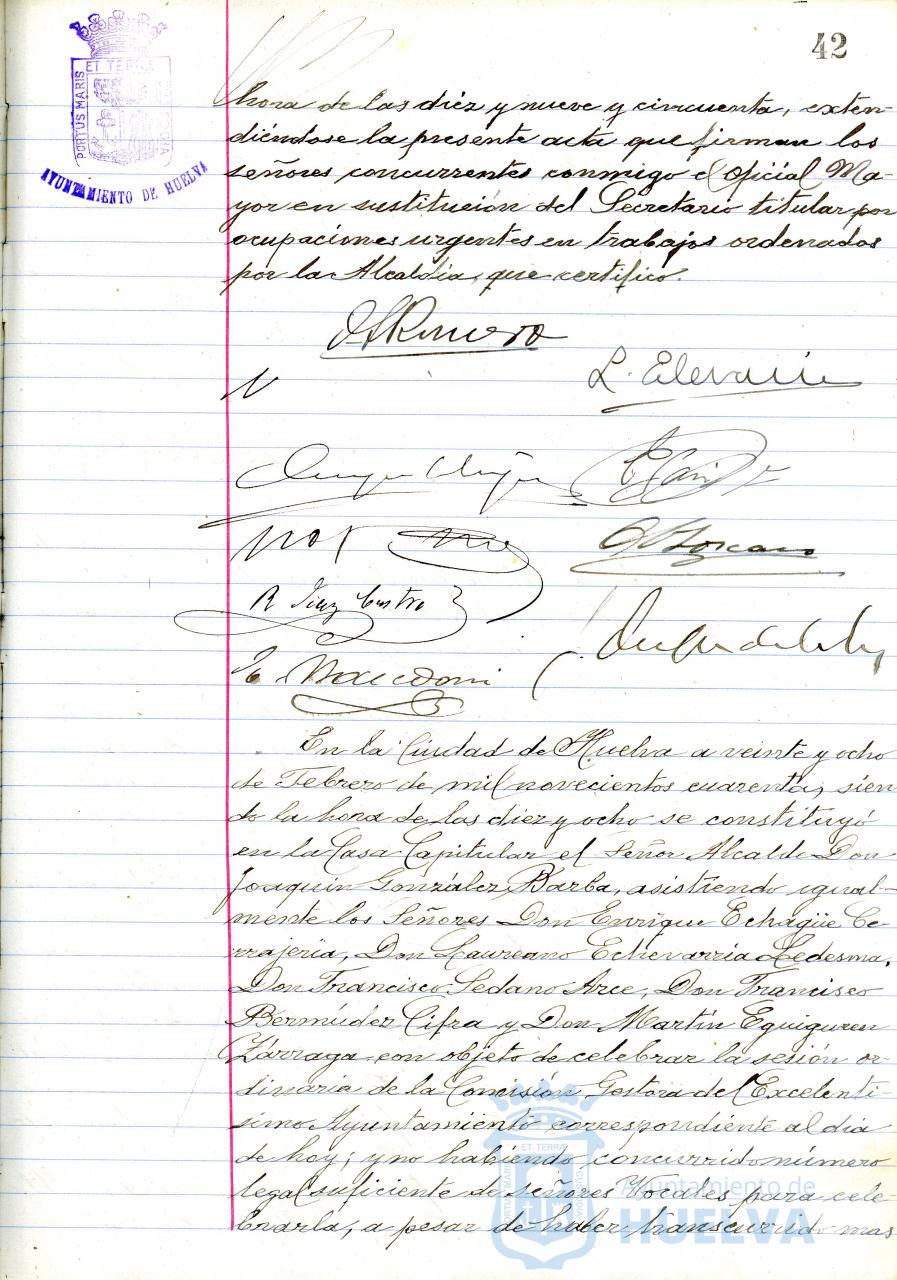 42
PORTUS MARIS
ET TERRÆ
CUSTODIA
AYUNTAMIENTO DE HUELVA
hora de las diez y nueve y cincuenta, exten-
diéndose la presente acta que firman los
señores concurrentes conmigo el Oficial Ma-
yor en sustitución del Secretario titular por
ocupaciones urgentes en trabajos ordenados
por la Alcaldía, que certifico.
Romero
L. Echevarría
R Diaz Castro
En la Ciudad de Huelva a veinte y ocho
de Febrero de mil novecientos cuarenta, sien-
do la hora de las diez y ocho se constituyó
en la Casa Capitular el Señor Alcalde Don
Joaquin González Barba, asistiendo igual-
mente los Señores Don Enrique Echagüe Ce-
rrajería, Don Laureano Echevarría Ledesma,
Don Francisco Sedano Arce, Don Francisco
Bermúdez Cifra y Don Martín Eguiguren
Zárraga con objeto de celebrar la sesión or-
dinaria de la Comisión Gestora del Excelentí-
simo Ayuntamiento correspondiente al dia
de hoy; y no habiendo concurrido número
legal suficiente de señores Vocales para cele-
brarla, a pesar de haber transcurrido mas
Ayuntamiento de
HUELVA